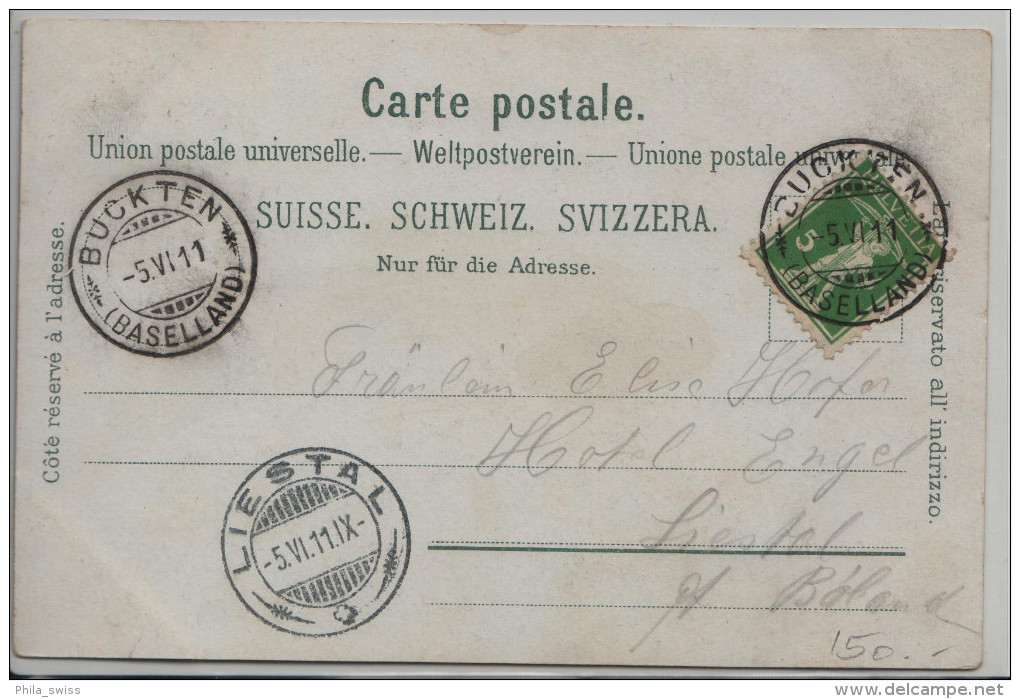 Carte postale.
Union postale universelle.— Weltpostverein.— Unione postale universale
SUISSE. SCHWEIZ. SVIZZERA.
Nur für die Adresse.
Côté réservé à l'adresse.
riservato all' indirizzo.
BUCKTEN
-5.VI.11
(BASELLAND)
BUCKTEN
-5.VI.11
(BASELLAND)
HELVETIA
5
LIESTAL
-5.VI.11.IX-
Fräulein Elise Hofer
Hotel Engel
Liestal
150.-
Phila_swiss
delcampe.net